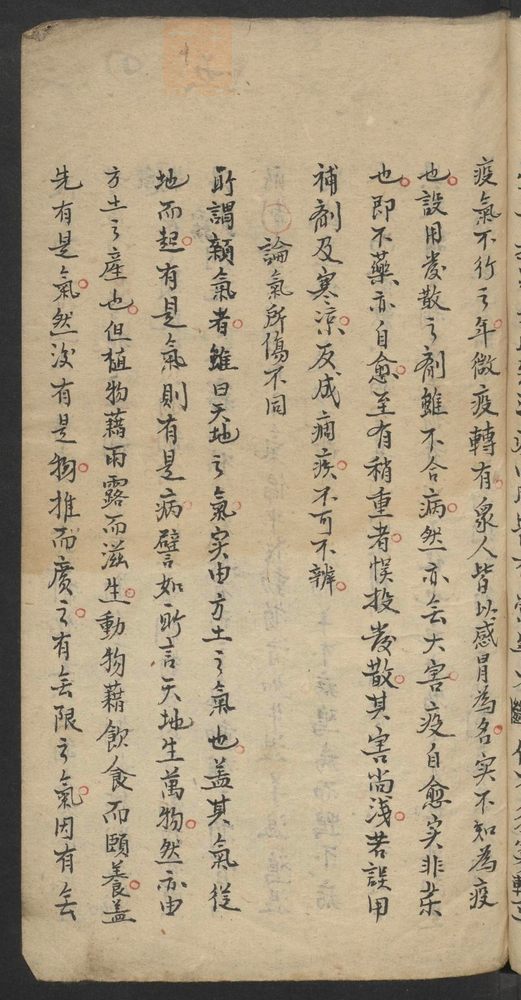 疫氣不行之年微疫轉有眾人皆以感冒為名实不知為疫
也設用发散之劑雖不合病然亦无大害疫自愈实非药
也即不藥亦自愈至有稍重者悮投发散其害尚浅若誤用
補劑及寒凉反成痼疾不可不辨
論氣所傷不同
所謂雜氣者雖曰天地之氣实由方土之氣也盖其氣從
地而起有是氣則有是病譬如所言天地生萬物然亦由
方土之產也但植物藉雨露而滋生動物藉飲食而頤養盖
先有是氣然後有是物推而廣之有無限之氣因有無